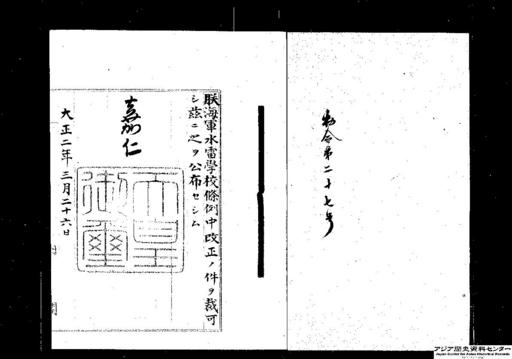 勅令第二十七号
朕海軍水雷学校條例中改正ノ件ヲ裁可
シ茲ニ之ヲ公布セシム
嘉仁
天皇御璽
大正二年三月二十六日
内閣
アジア歴史資料センター
Japan Center for Asian Historical Records